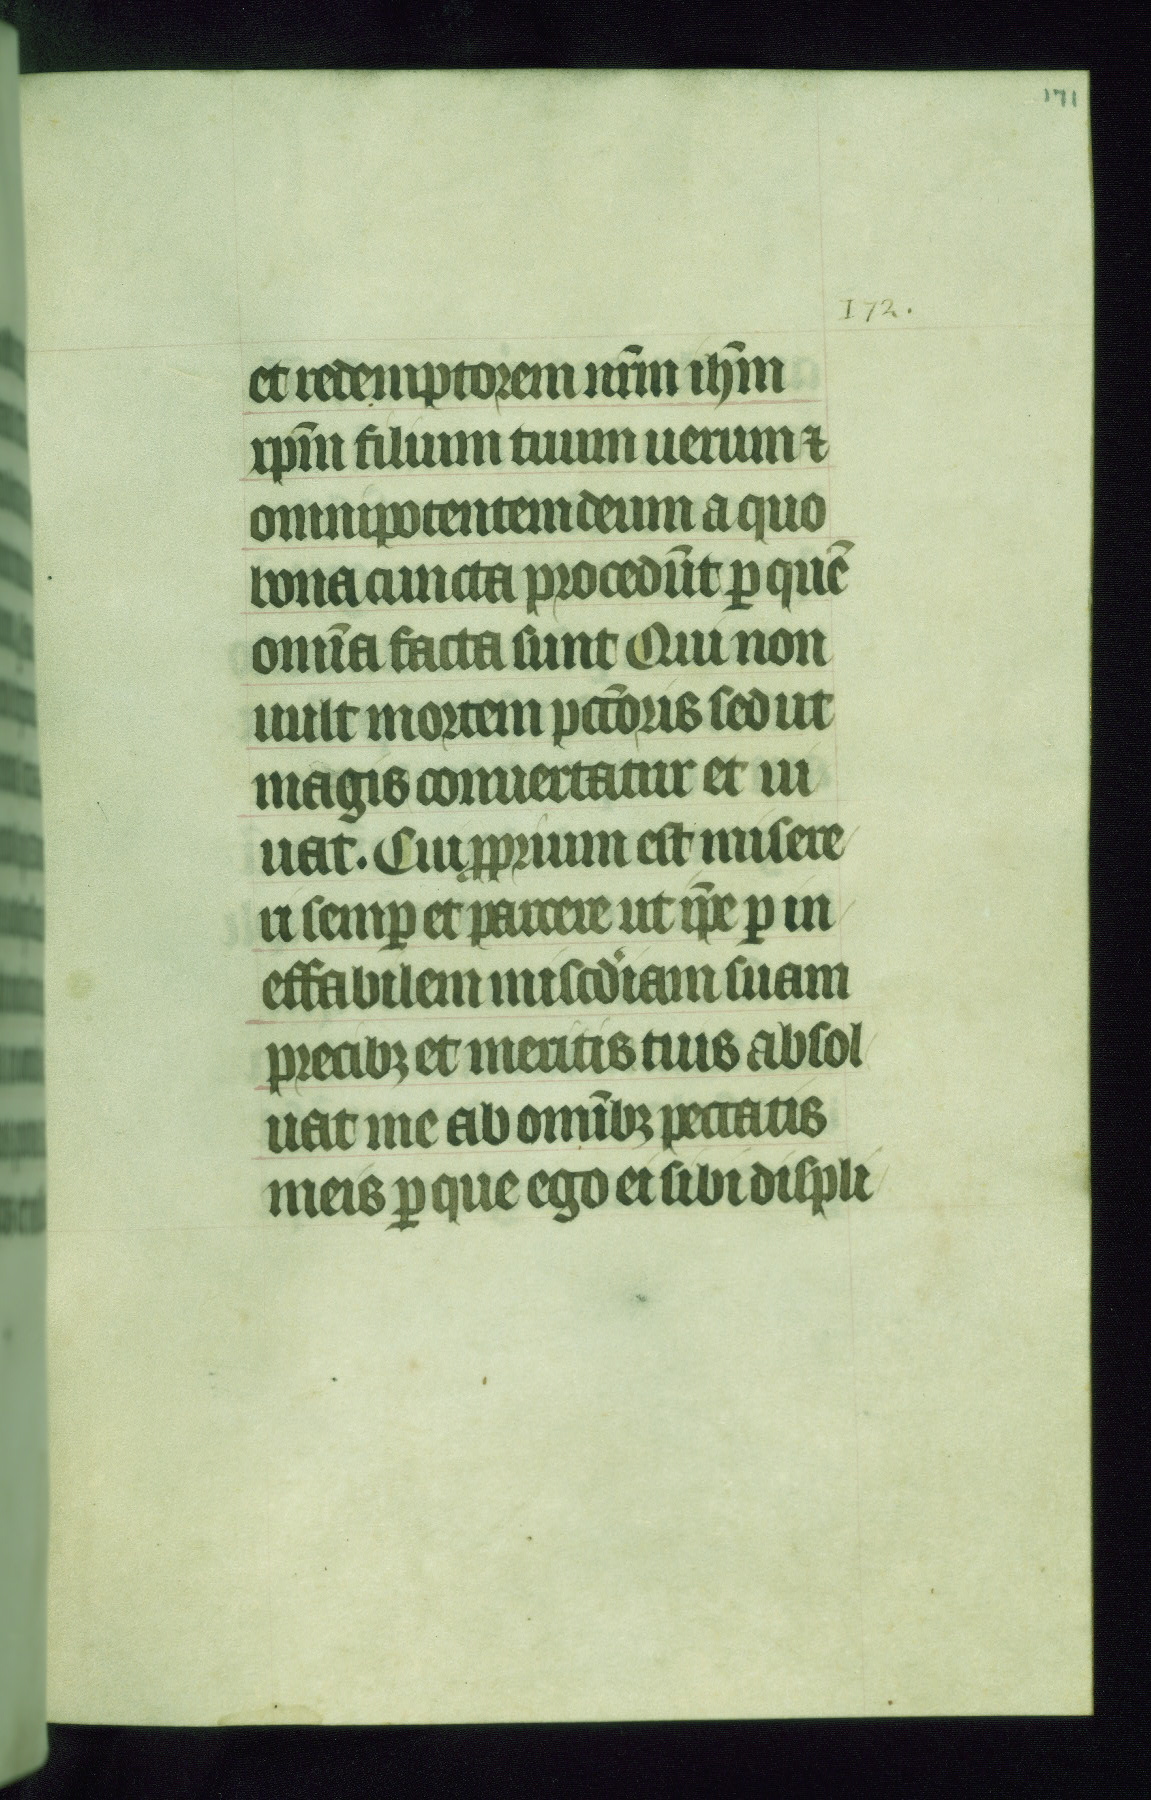 171
172.
et redemptorem nr̄m ih̄m
xp̄m filium tuum uerum ⁊
omnipotentem deum a quo
bona cuncta procedūt ꝑ quē
omīa facta sunt Qui non
uult mortem pct̄oris sed ut
magis conuertatur et ui
uat. Cui ꝓprium est misere
ri semꝑ et parcere ut ip̄e ꝑ in
effabilem miscd̄iam suam
precibꝫ et meritis tuis absol
uat me ab omībꝫ peccatis
meis ꝑ que ego ei sibi displi